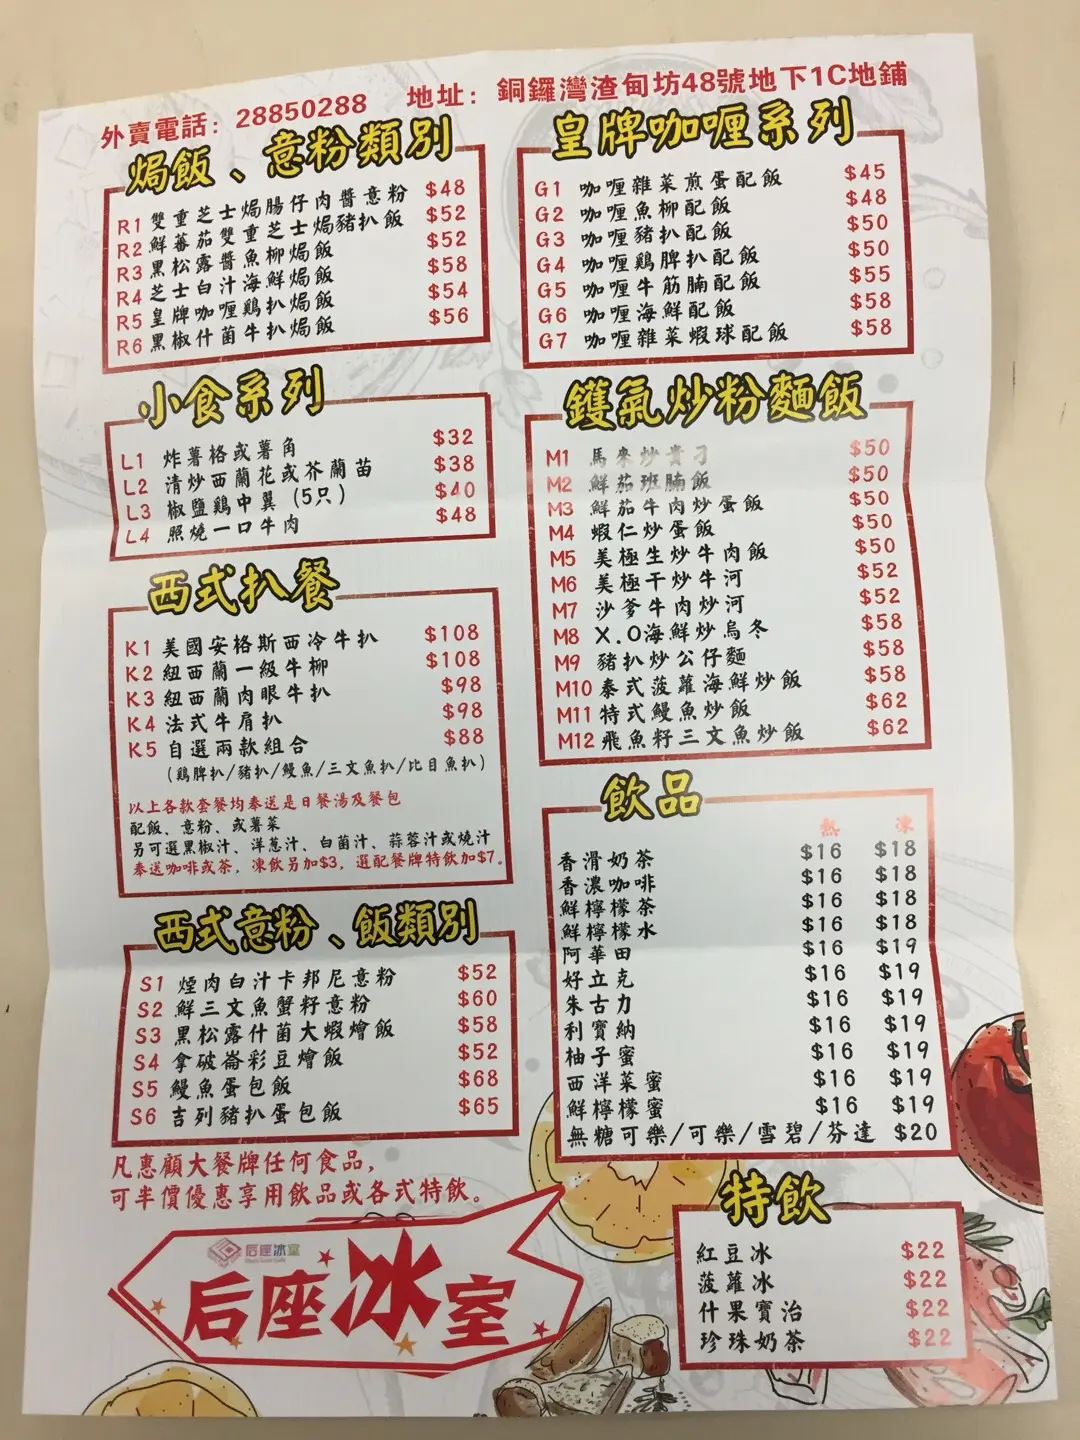 外賣電話：28850288 地址：銅鑼灣渣甸坊48號地下1C地鋪
焗飯、意粉類別
R1 雙重芝士焗腸仔肉醬意粉 $48
R2 鮮蕃茄雙重芝士焗豬扒飯 $52
R3 黑松露醬魚柳焗飯 $52
R4 芝士白汁海鮮焗飯 $58
R5 皇牌咖喱鷄扒焗飯 $54
R6 黑椒什菌牛扒焗飯 $56
小食系列
L1 炸薯格或薯角 $32
L2 清炒西蘭花或芥蘭苗 $38
L3 椒鹽鷄中翼（5只） $40
L4 照燒一口牛肉 $48
西式扒餐
K1 美國安格斯西冷牛扒 $108
K2 紐西蘭一級牛柳 $108
K3 紐西蘭肉眼牛扒 $98
K4 法式牛肩扒 $98
K5 自選兩款組合 $88
（鷄脾扒/豬扒/鰻魚/三文魚扒/比目魚扒）
以上各款套餐均奉送是日餐湯及餐包
配飯、意粉、或薯菜
另可選黑椒汁、洋葱汁、白菌汁、蒜蓉汁或燒汁
奉送咖啡或茶，凍飲另加$3，選配餐牌特飲加$7。
西式意粉、飯類別
S1 煙肉白汁卡邦尼意粉 $52
S2 鮮三文魚蟹籽意粉 $60
S3 黑松露什菌大蝦燴飯 $58
S4 拿破崙彩豆燴飯 $52
S5 鰻魚蛋包飯 $68
S6 吉列豬扒蛋包飯 $65
凡惠顧大餐牌任何食品，
可半價優惠享用飲品或各式特飲。
后座冰室
后座冰室
皇牌咖喱系列
G1 咖喱雜菜煎蛋配飯 $45
G2 咖喱魚柳配飯 $48
G3 咖喱豬扒配飯 $50
G4 咖喱鷄脾扒配飯 $50
G5 咖喱牛筋腩配飯 $55
G6 咖喱海鮮配飯 $58
G7 咖喱雜菜蝦球配飯 $58
鑊氣炒粉麵飯
M1 馬來炒貴刁 $50
M2 鮮茄班腩飯 $50
M3 鮮茄牛肉炒蛋飯 $50
M4 蝦仁炒蛋飯 $50
M5 美極生炒牛肉飯 $50
M6 美極干炒牛河 $52
M7 沙爹牛肉炒河 $52
M8 X.O海鮮炒烏冬 $58
M9 豬扒炒公仔麵 $58
M10 泰式菠蘿海鮮炒飯 $58
M11 特式鰻魚炒飯 $62
M12 飛魚籽三文魚炒飯 $62
飲品
熱 凍
香滑奶茶 $16 $18
香濃咖啡 $16 $18
鮮檸檬茶 $16 $18
鮮檸檬水 $16 $18
阿華田 $16 $19
好立克 $16 $19
朱古力 $16 $19
利賓納 $16 $19
柚子蜜 $16 $19
西洋菜蜜 $16 $19
鮮檸檬蜜 $16 $19
無糖可樂/可樂/雪碧/芬達 $20
特飲
紅豆冰 $22
菠蘿冰 $22
什果賓治 $22
珍珠奶茶 $22